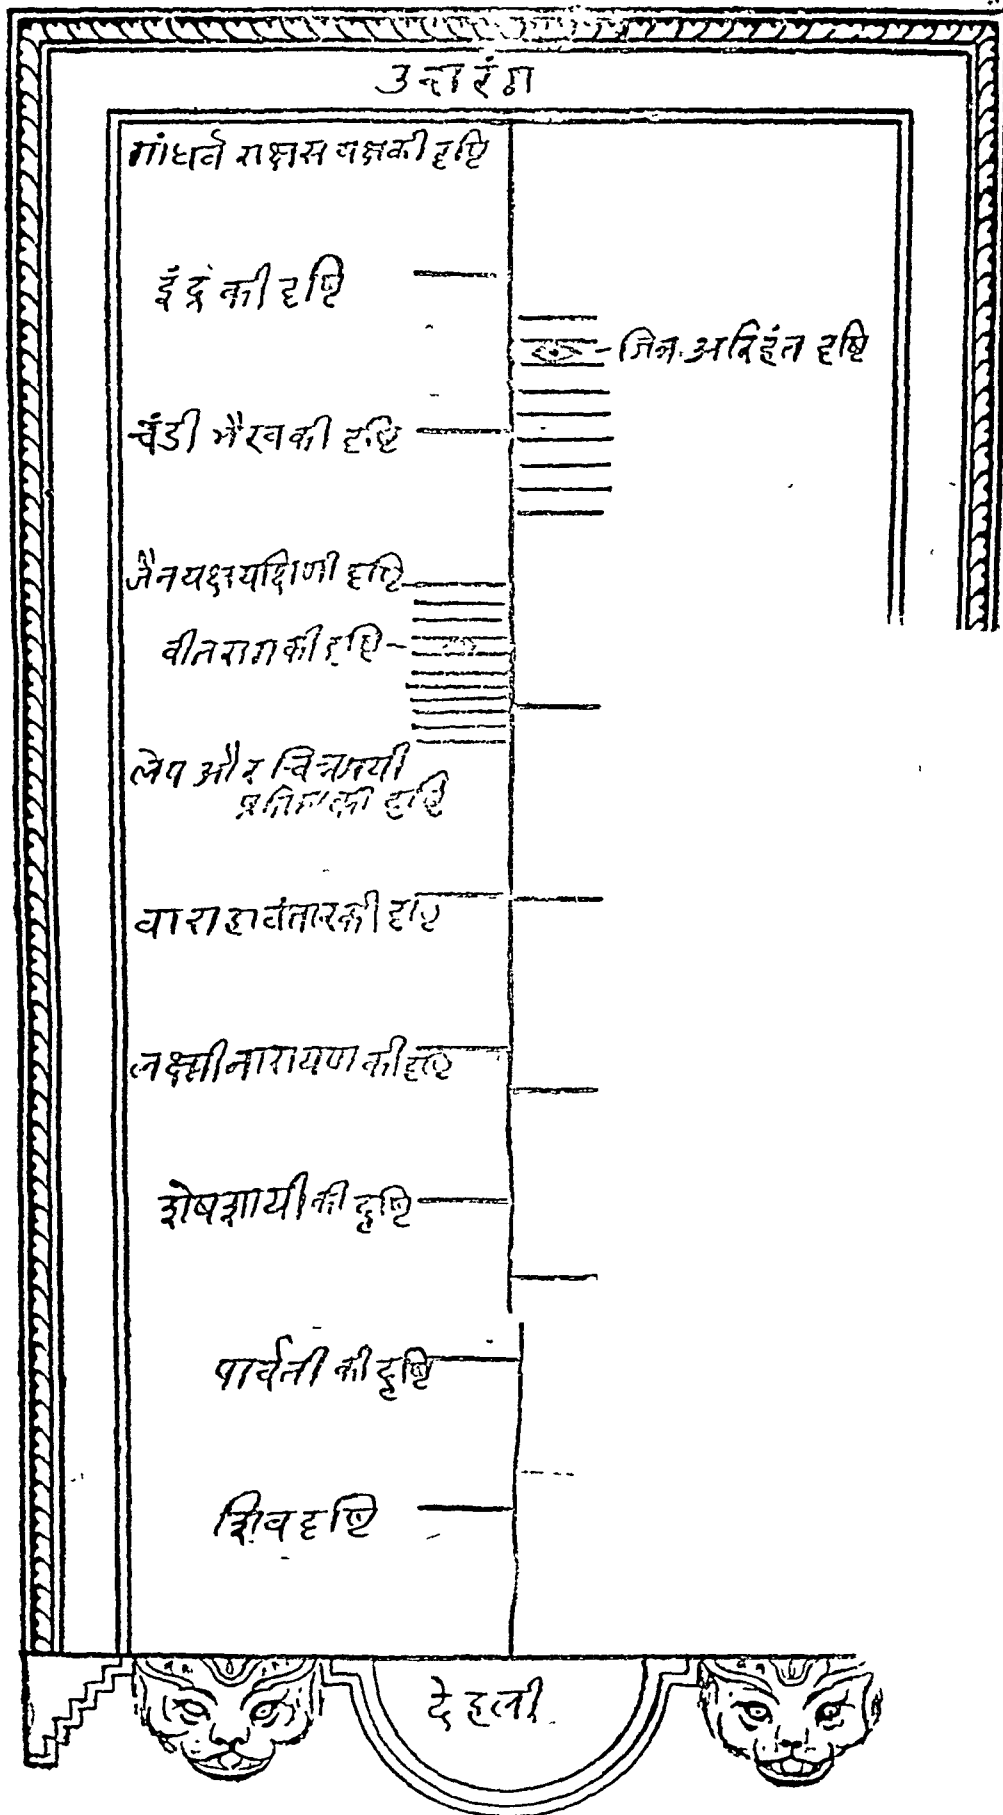 उत्तरंग
गांधर्व राक्षस यक्षकी दृष्टि
इंद्र की दृष्टि
जिन अरिहंत दृष्टि
चंडी भैरवकी दृष्टि
जैनयक्षयक्षिणी दृष्टि
वीतरागकी दृष्टि
लेप और चित्रमयी
प्रतिमाकी दृष्टि
वाराहावतारकी दृष्टि
लक्ष्मीनारायण की दृष्टि
शेषशायी की दृष्टि
पार्वती की दृष्टि
शिव दृष्टि
देहली